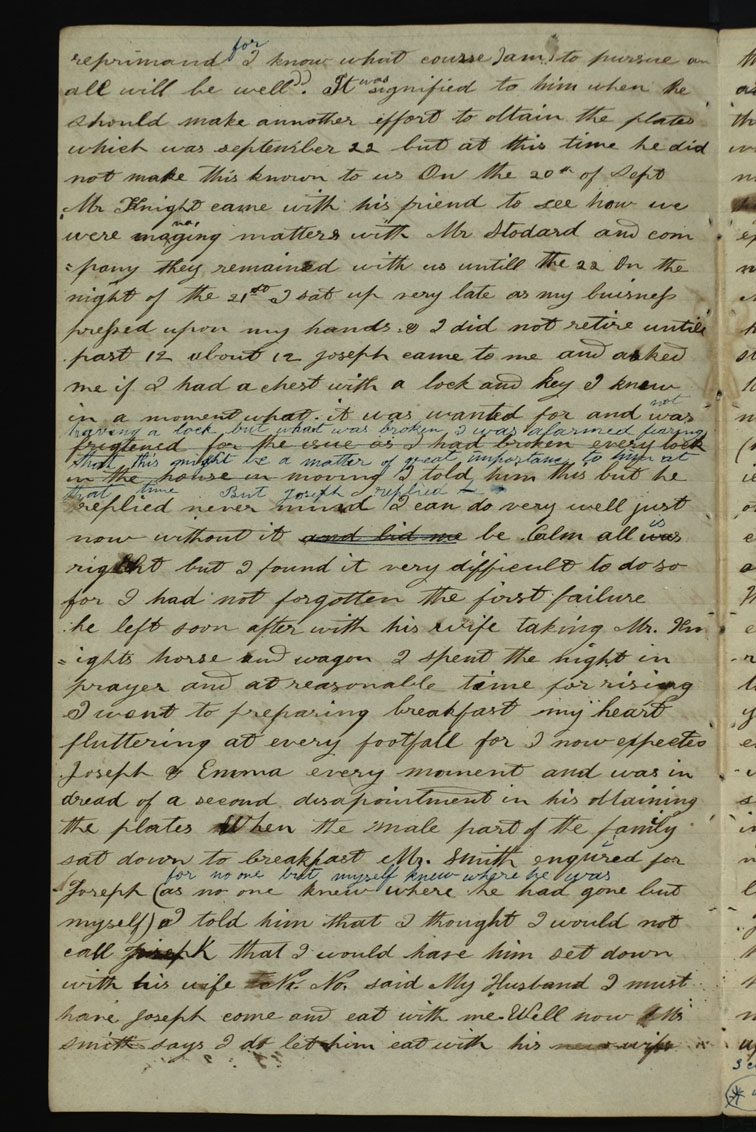 reprimand for I know what course I am to pursue an
all will be well". It was signified to him when he
should make annother effort to obtain the plates
which was september 22 but at this time he did
not make this known to us On the 20th of Sept
Mr Knight came with his friend to see how we
were managing matters with Mr Stodard and com
=pany they remained with us untill the 22 On the
night of the 21st I sat up very late as my buisness
pressed upon my hands. & I did not retire untill
past 12 about 12 Joseph came to me and asked
me if I had a chest with a lock and key I knew
in a moment what it was wanted for and was not
having a lock but what was broken I was alarmed fearing
frigtened for the isue as I had broken every lock
that this might be a matter of great importance to him at
in the house in moving I told him this but he
that time But Joseph replied
replied never mind I can do very well just
now without it and bid me be Calm all was is
right but I found it very difficult to do so
for I had not forgotten the first failure
he left soon after with his wife taking Mr. Kn
=ights horse and wagon I spent the night in
prayer and at reasonable time for rising
I went to preparing breakfast my heart
fluttering at every footfall for I now expected
Joseph & Emma every moment and was in
dread of a second disapointment in his obtaining
the plates When the male part of the family
sat down to breakfast Mr. Smith enquired for
for no one but myself knew where he was
Joseph (as no one knew where he had gone but
myself) I told him that I thought I would not
call Joseph that I would have him set down
with his wife No. No. said My Husband I must
have Joseph come and eat with me. Well now Mr
Smith says I do let him eat with his wife